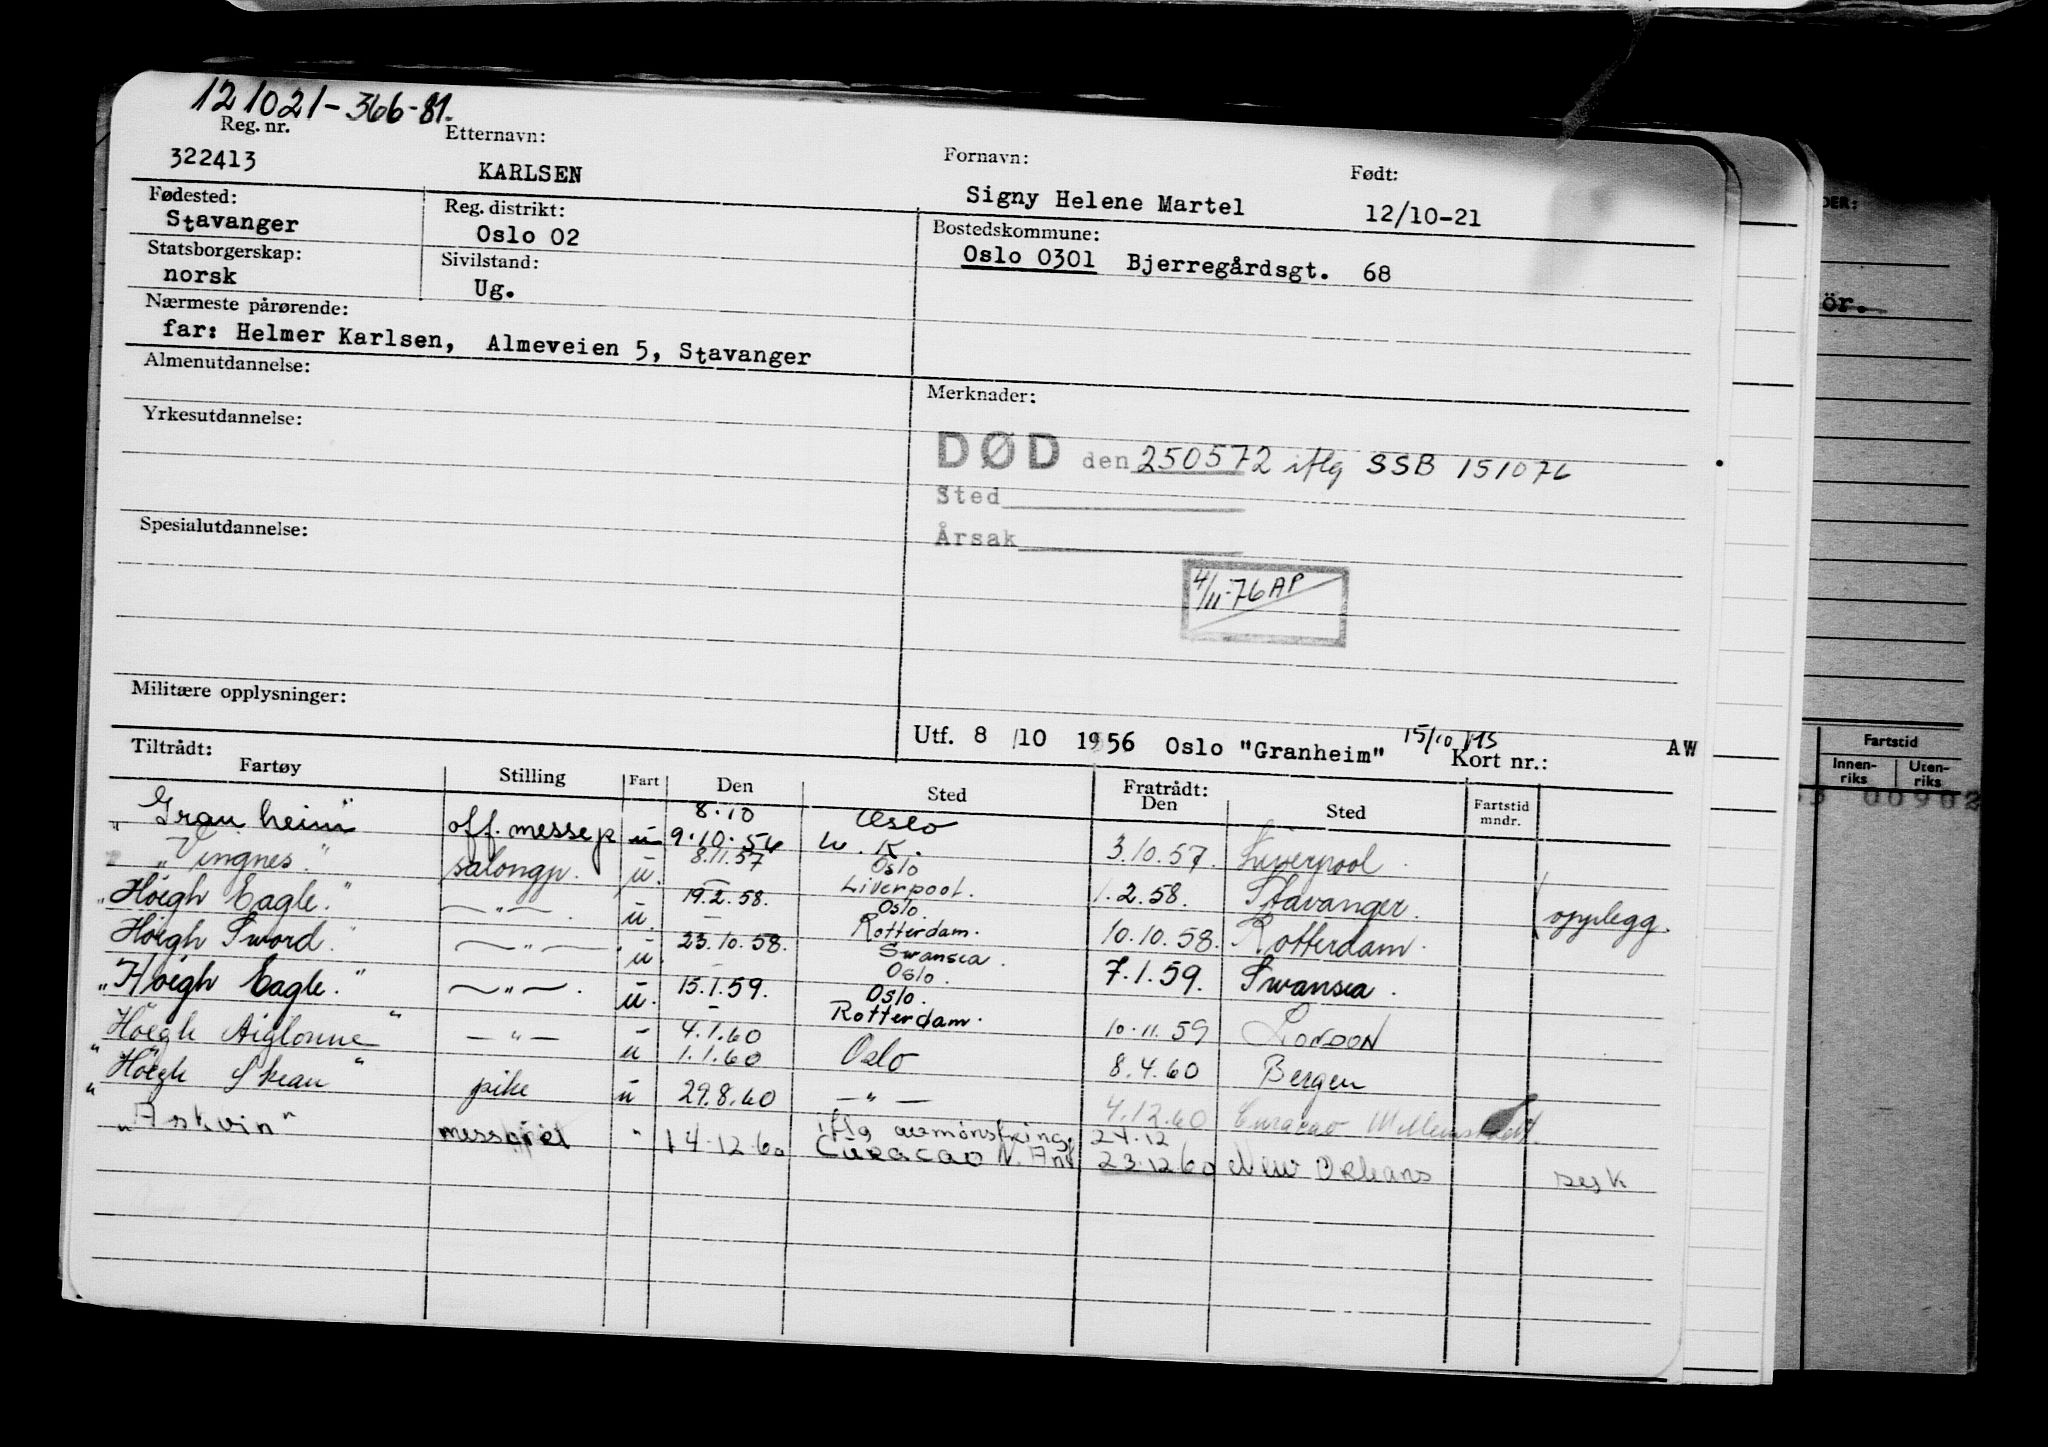 121021-366-81.
Reg. nr. Etternavn: Fornavn: Født:
322413 KARLSEN Signy Helene Martel 12/10-21
Fødested: Reg. distrikt: Bostedskommune:
Stavanger Oslo 02 Oslo 0301 Bjerregårdsgt. 68
Statsborgerskap: Sivilstand:
norsk Ug.
Nærmeste pårørende:
far: Helmer Karlsen, Almeveien 5, Stavanger
Almenutdannelse: Merknader:
Yrkesutdannelse:
DØD den 250572 iflg SSB 151076
Sted
Årsak
Spesialutdannelse:
4/11-76 AP
Militære opplysninger:
Utf. 8/10 1956 Oslo "Granheim" 15/10 Kort nr.: AW
Tiltrådt: Fratrådt:
Fartøy Stilling Fart Den Sted Den Sted Fartstid mndr.
8.10 Oslo
"Granheim" off. messep u 9.10.56 U.K. 3.10.57. Liverpool.
"Vingnes." salongp. u. 8.11.57 Oslo 1.2.58. Stavanger. opplegg.
Liverpool.
"Höegh Eagle." — " — . u. 19.2.58. Oslo. 10.10.58. Rotterdam.
Rotterdam.
"Höegh Sword." — " — . u. 23.10.58. Swansea. 7.1.59. Swansea.
Oslo.
"Höegh Eagle." — " — . u. 15.1.59. Oslo. 10.11.59 London
Rotterdam.
4.1.60
"Höegh Aiglonne" — " — u 1.1.60 Oslo 8.4.60 Bergen
"Höegh Skean" pike u 29.8.60 — " — 4.12.60 Curacao
iflg avmønstring 24.12
"Askvin" " 14.12.60 Curacao N. Ant 23.12.60 New Orleans
DER:
ör.
Fartstid
Innenriks Utenriks
00902